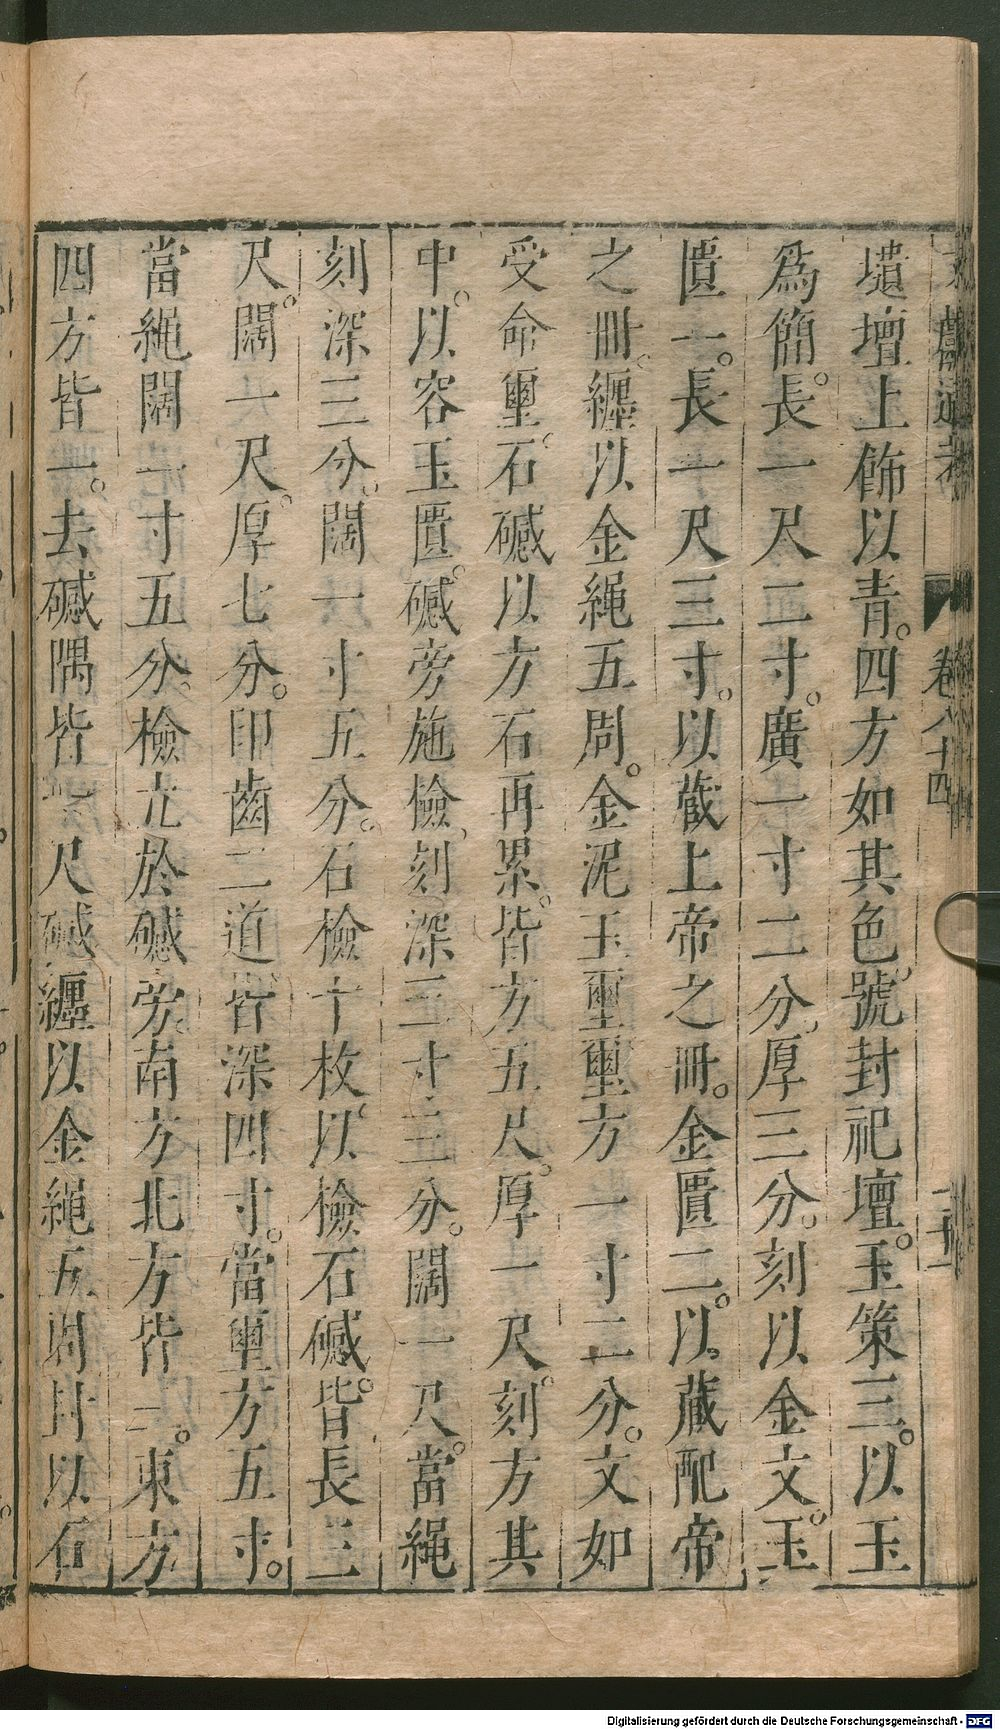 壝壇上飾以青。四方如其色。號封祀壇。玉策三。以玉
爲簡。長一尺二寸。廣一寸二分。厚三分。刻以金文。玉
匱一。長一尺三寸。以藏上帝之冊。金匱二。以藏配帝
之冊。纏以金繩五周。金泥玉璽璽方一寸二分。文如
受命璽。石䃭以方石再累。皆方五尺。厚一尺。刻方其
中。以容玉匱。䃭旁施檢。刻深三寸三分。闊一尺。當繩
刻深三分。闊一寸五分。石檢十枚。以檢石䃭。皆長三
尺。闊一尺。厚七分。印齒二道。皆深四寸。當璽方五寸。
當繩闊一寸五分。檢立於䃭旁。南方北方皆三。東方
四方皆一。去䃭隅皆一尺䃭纏以金繩五周封以石
卷八十四
Digitalisierung gefördert durch die Deutsche Forschungsgemeinschaft - DFG